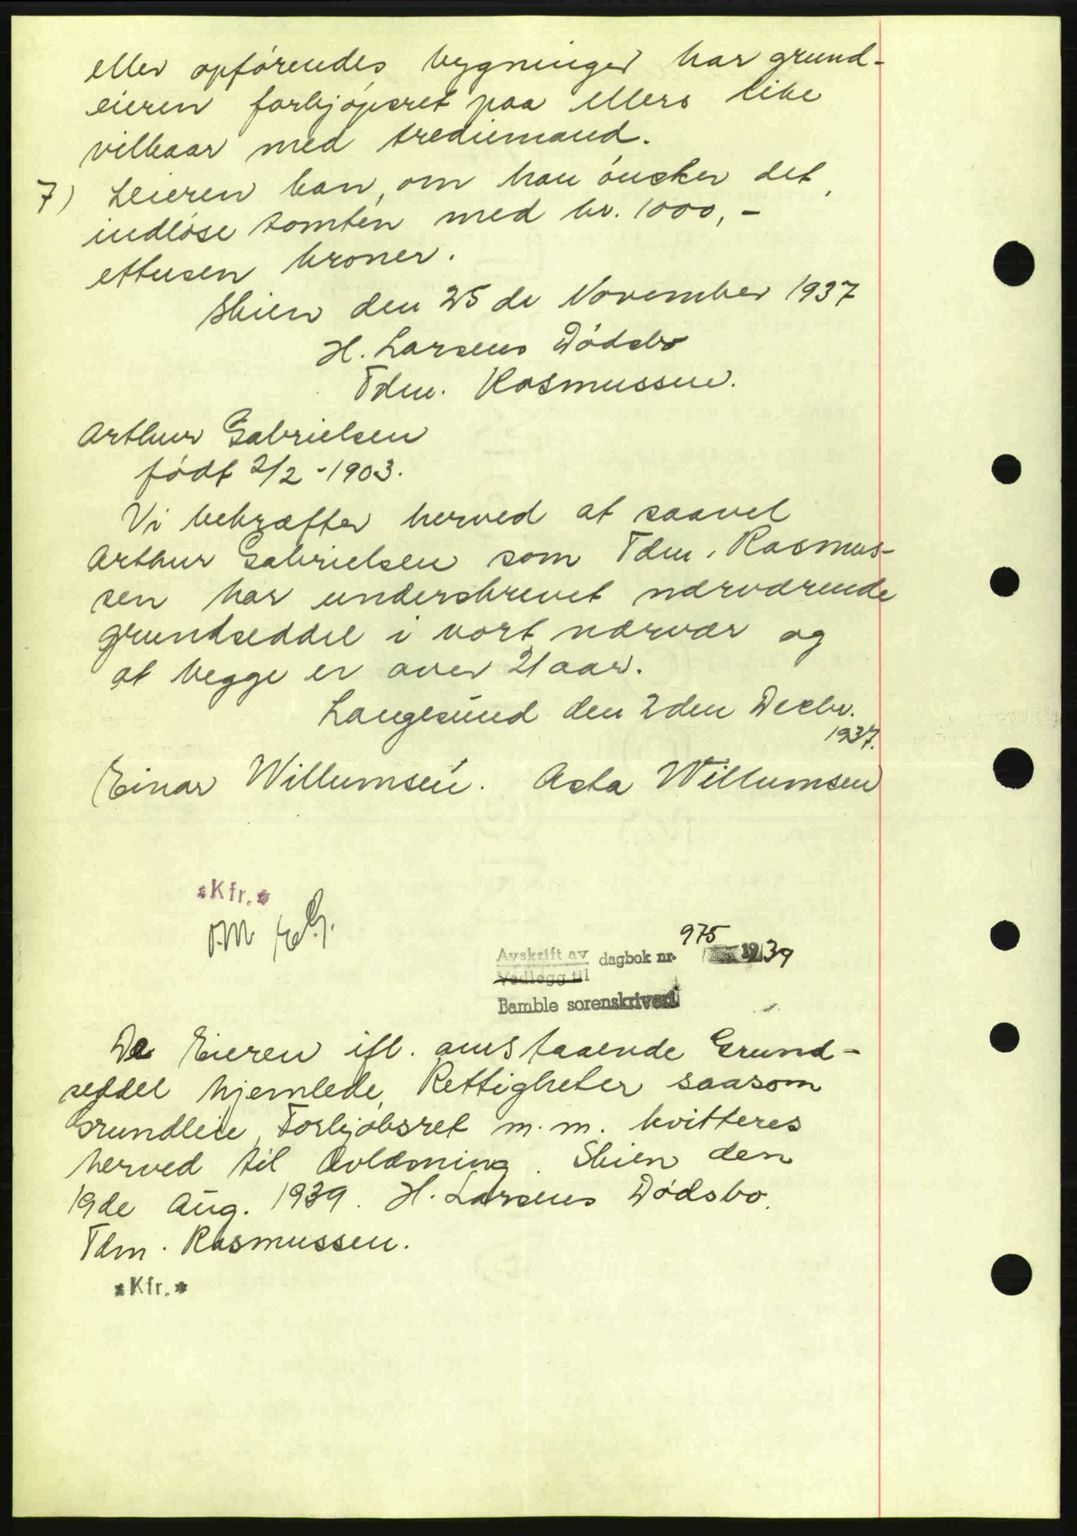 eller opførendes bygninger har grund-
eieren forkjøpsret paa ellers like
vilkaar med trediemand.
7) Leieren kan, om han ønsker det,
indløse tomten med kr. 1000,-
ettusen kroner.
Skien den 25 de November 1937
H. Larsens Dødsbo
Tdm. Rasmussen.
Arthur Gabrielsen
født 2/2 -1903.
Vi bekræfter herved at saavel
Arthur Gabrielsen som Tdm. Rasmus-
sen har underskrevet nærværende
grundseddel i vort nærvær og
at begge er over 21 aar.
Langesund den 2den Desbr.
1937.
Einar Willumsen. Asta Willumsen
*Kfr.*
975
Avskrift av dagbok nr. 1939
Vedlegg til
Bamble sorenskriveri
De Eieren ifl. omstaaende Grund-
seddel hjemlede Rettigheter saasom
Grundleie, Forkjøbsret m.m. kvitteres
herved til Avlæsning. Skien den
19de Aug. 1939. H. Larsens Dødsbo.
Tdm. Rasmussen.
*Kfr.*